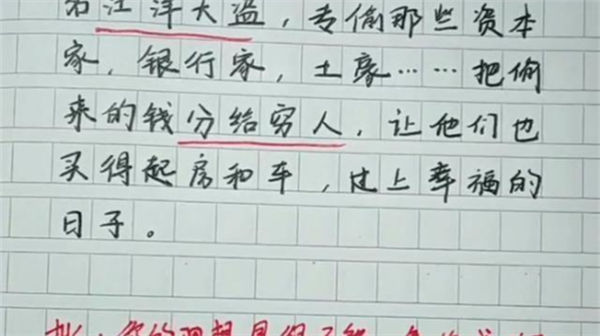 为江洋大盗，专偷那些资本
家，银行家，土豪……把偷
来的钱分给穷人，让他们也
买得起房和车，过上幸福的
日子。
批：你的理想是很